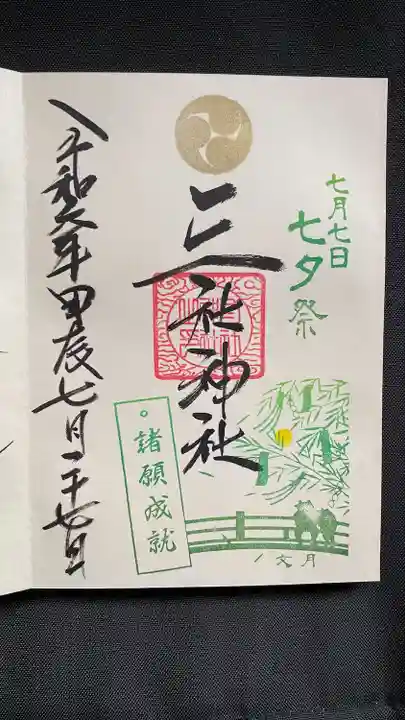 七月七日
七夕祭
三社神社
諸願成就
ノ文月
令和六年甲辰七月二十七日